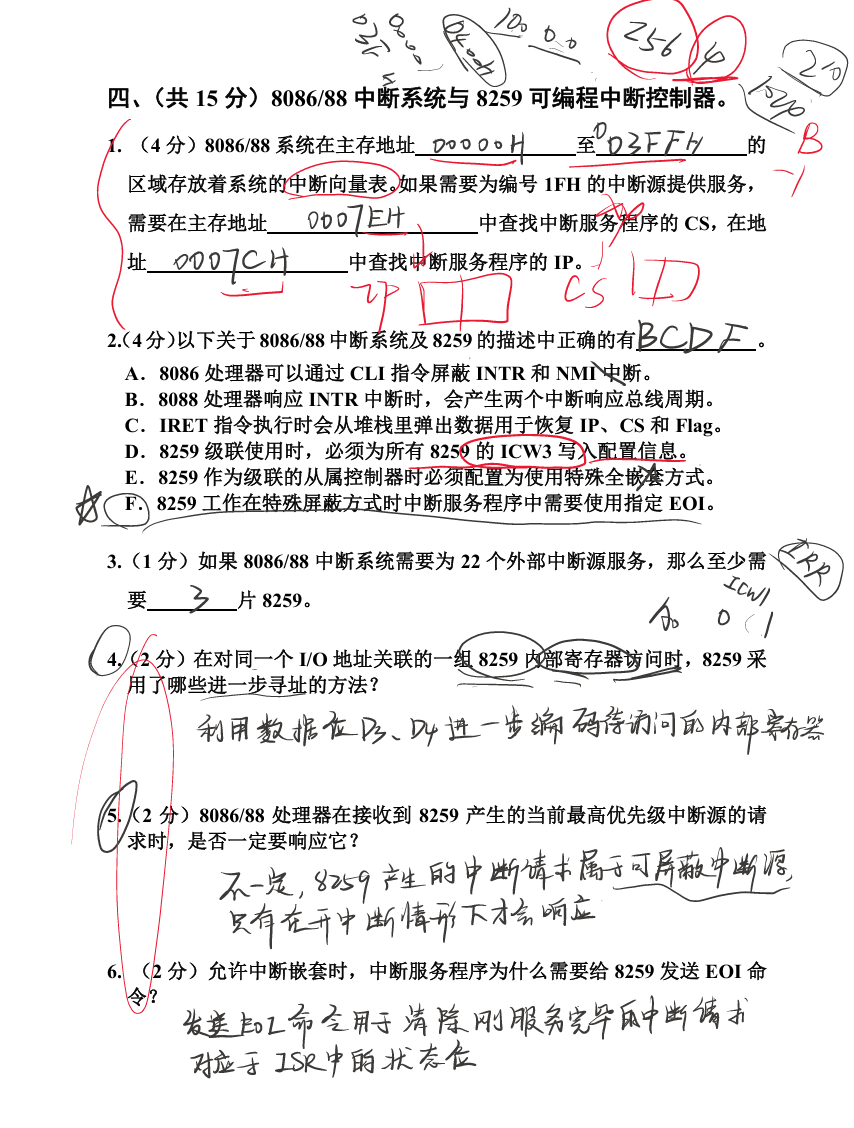 256 4
2^10
四、（共 15 分）8086/88 中断系统与 8259 可编程中断控制器。
1. （4 分）8086/88 系统在主存地址 00000H 至 003FFH 的
区域存放着系统的中断向量表。如果需要为编号 1FH 的中断源提供服务，
需要在主存地址 0007EH 中查找中断服务程序的 CS，在地
址 0007CH 中查找中断服务程序的 IP。
IP CS
2.（4 分）以下关于 8086/88 中断系统及 8259 的描述中正确的有 BCDF 。
A．8086 处理器可以通过 CLI 指令屏蔽 INTR 和 NMI 中断。
B．8088 处理器响应 INTR 中断时，会产生两个中断响应总线周期。
C．IRET 指令执行时会从堆栈里弹出数据用于恢复 IP、CS 和 Flag。
D．8259 级联使用时，必须为所有 8259 的 ICW3 写入配置信息。
E．8259 作为级联的从属控制器时必须配置为使用特殊全嵌套方式。
F．8259 工作在特殊屏蔽方式时中断服务程序中需要使用指定 EOI。
3.（1 分）如果 8086/88 中断系统需要为 22 个外部中断源服务，那么至少需
IRR
要 3 片 8259。
ICW1
A0 0 1
4.（2 分）在对同一个 I/O 地址关联的一组 8259 内部寄存器访问时，8259 采
用了哪些进一步寻址的方法？
利用数据位D3、D4进一步编码待访问的内部寄存器
5.（2 分）8086/88 处理器在接收到 8259 产生的当前最高优先级中断源的请
求时，是否一定要响应它？
不一定，8259产生的中断请求属于可屏蔽中断源，
只有在开中断情形下才会响应
6. （2 分）允许中断嵌套时，中断服务程序为什么需要给 8259 发送 EOI 命
令？
发送EOI命令用于清除刚服务完毕的中断请求
对应于ISR中的状态位